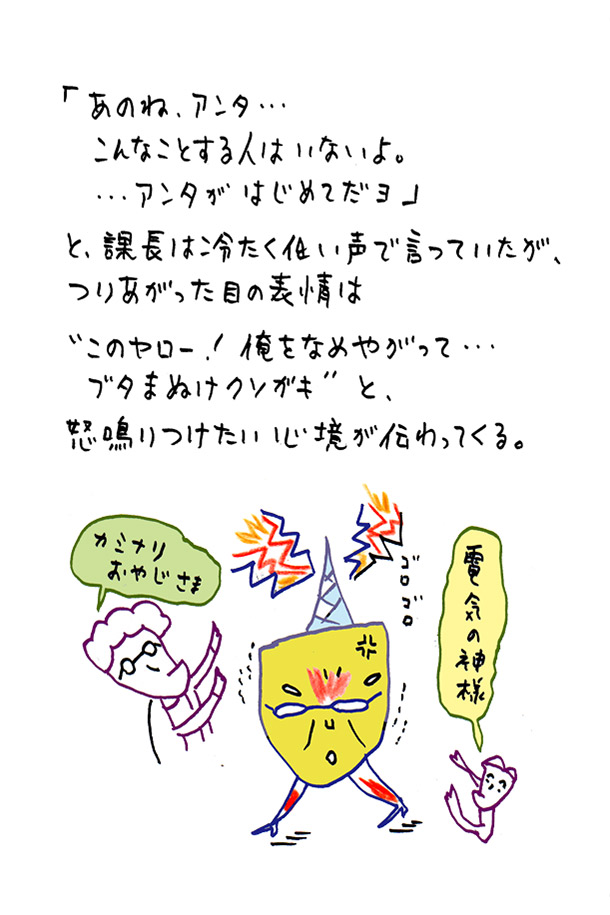 「あのね、アンタ…
こんなことする人はいないよ。
…アンタが はじめてだヨ」
と、課長は冷たく低い声で言っていたが、
つりあがった目の表情は
〝このヤロー！俺をなめやがって…
ブタまぬけクソガキ〞と、
怒鳴りつけたい心境が伝わってくる。
カミナリ
おやじさま
ゴロゴロ
電気の神様